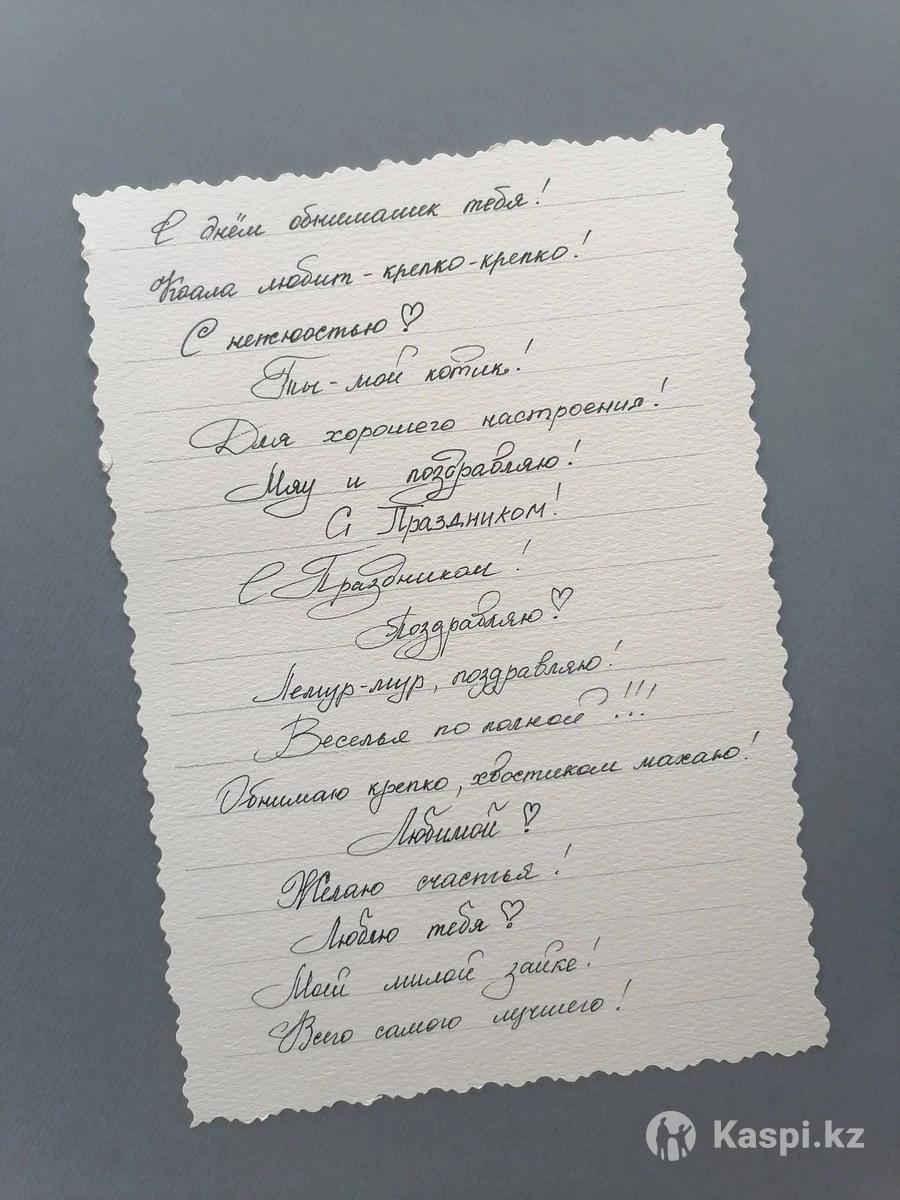 С днём обнимашек тебя!
Коала любит - крепко-крепко!
С нежностью ♡
Ты - мой котик!
Для хорошего настроения!
Мяу и поздравляю!
С Праздником!
С Праздником!
Поздравляю ♡
Лемур-мур, поздравляю!
Веселья по полной!!!
Обнимаю крепко, хвостиком махаю!
Любимой ♡
Желаю счастья!
Люблю тебя ♡
Моей милой зайке!
Всего самого лучшего!
Kaspi.kz